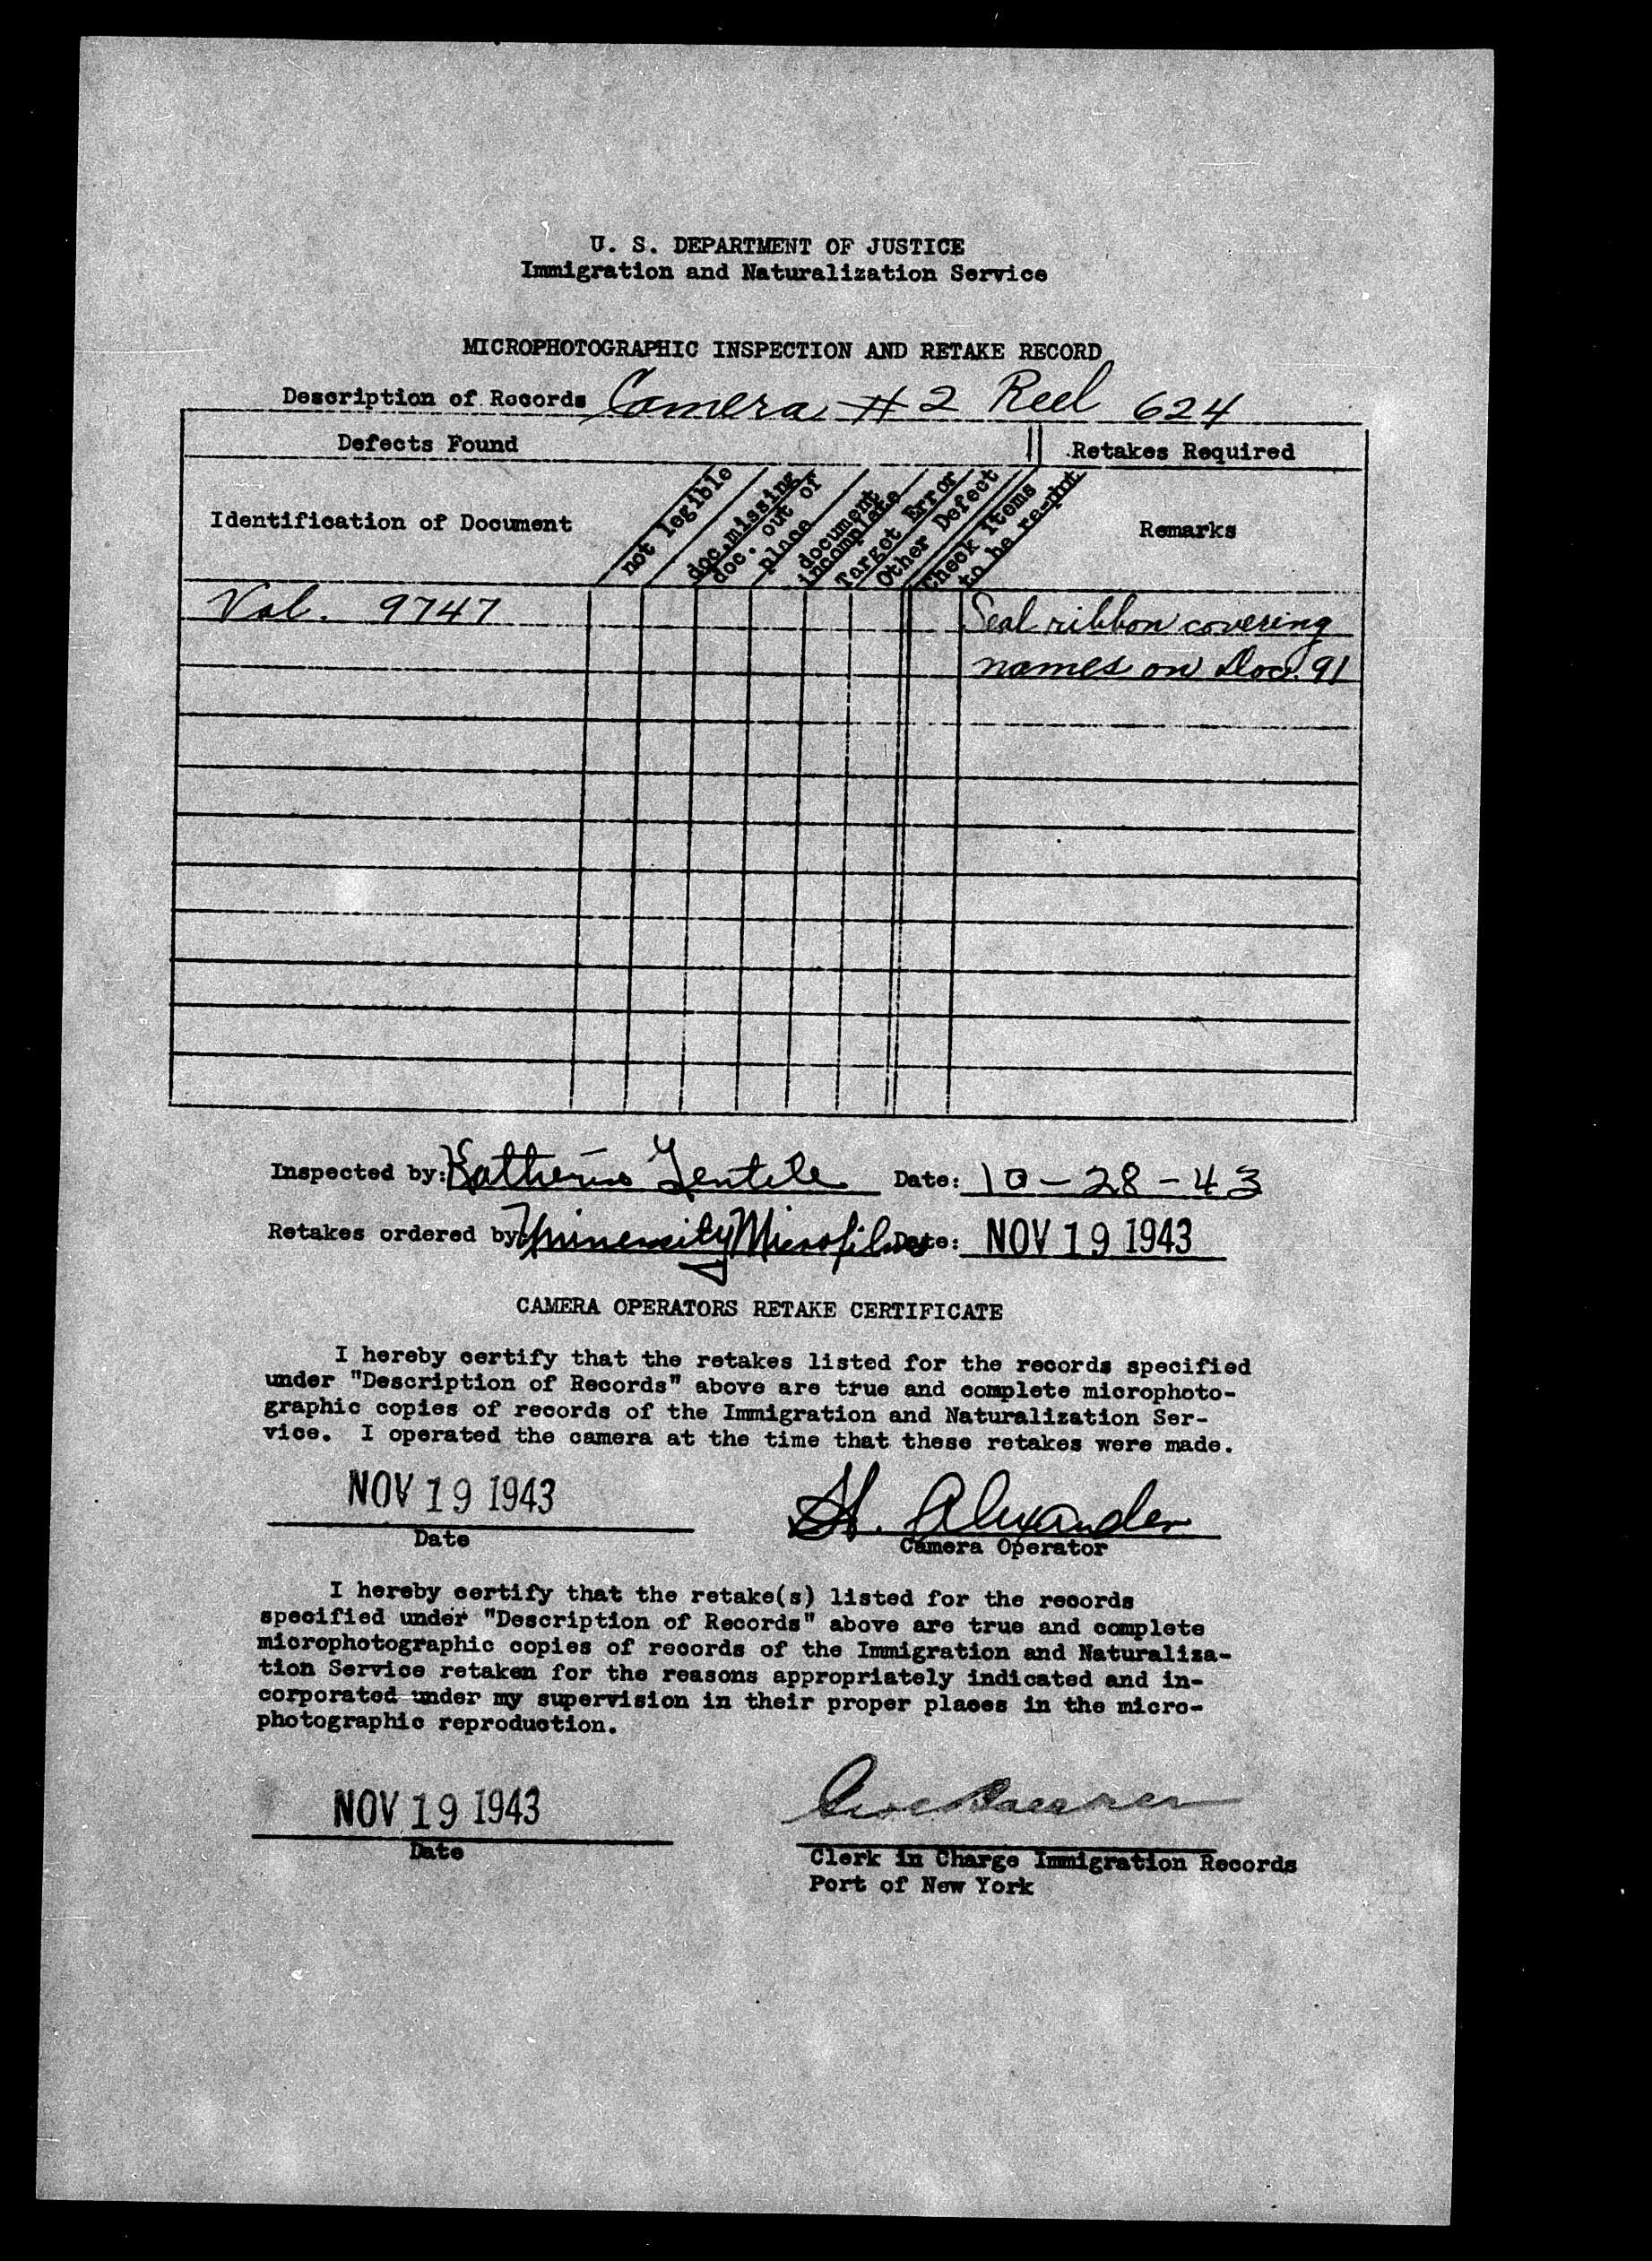 U. S. DEPARTMENT OF JUSTICE
Immigration and Naturalization Service
MICROPHOTOGRAPHIC INSPECTION AND RETAKE RECORD
Description of Records Camera #2 Reel 624
Defects Found
Retakes Required
Identification of Document
not legible
doc. missing
doc. out of
place
document
incomplete
Target Error
Other Defect
Check Items
to be re-phot
Remarks
Vol. 9747
Seal ribbon covering
names on Doc. 91
Inspected by: Katherine Gentile Date: 10-28-43
Retakes ordered by University Microfilms Date: NOV 19 1943
CAMERA OPERATORS RETAKE CERTIFICATE
I hereby certify that the retakes listed for the records specified
under "Description of Records" above are true and complete microphoto-
graphic copies of records of the Immigration and Naturalization Ser-
vice. I operated the camera at the time that these retakes were made.
NOV 19 1943
H. Alexander
Date
Camera Operator
I hereby certify that the retake(s) listed for the records
specified under "Description of Records" above are true and complete
microphotographic copies of records of the Immigration and Naturaliza-
tion Service retaken for the reasons appropriately indicated and in-
corporated under my supervision in their proper places in the micro-
photographic reproduction.
NOV 19 1943
Date
Clerk in Charge Immigration Records
Port of New York